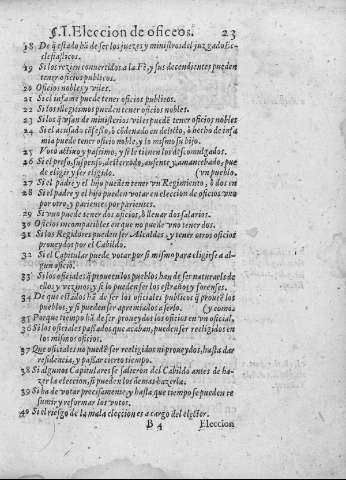 §. I. Eleccion de oficeos. 23
18 De q̃ estado hã de ser los juezes y ministros del juzgado Ec-
clesiasticos.
19 Si los rezien conuertidos a la Fè, y sus decendientes pueden
tener oficios publicos.
20 Oficios nobles y viles.
21 Si el infame puede tener oficios publicos.
22 Si los illegitimos pueden tener oficios nobles.
23 Si los q̃ vsan de ministerios viles puedẽ tener oficios nobles
24 Si el acusado cõfesso, o cõdenado en delicto, ò hecho de infa
mia puede tener oficio noble, y lo mismo su hijo.
25 Voto actiuo y passiuo, y si le tienen los descomulgados.
26 Si el preso, suspenso, desterrado, ausente, y amancebado, pue
de elegir y ser elegido. (vn pueblo.
27 Si el padre y el hijo pueden tener vn Regimiento, ò dos en
28 Si el padre y el hijo pueden votar en eleccion de oficios vno
por otro, y parientes por parientes.
29 Si vno puede tener dos oficios, ò lleuar dos salarios.
30 Oficios incompatibles en que no puede vno tener dos.
31 Si los Regidores pueden ser Alcaldes, y tener otros oficios
proueydos por el Cabildo.
32 Si el Capitular puede votar por si mismo para elegirse a al-
gun oficio.
33 Si los oficiales q̃ prouen los pueblos hay de ser naturales de
ellos y vezinos, y si lo pueden ser los estraños y forenses.
34 De que estados hã de ser los oficiales publicos q̃ prouẽ los
pueblos, y si pueden ser apremiados a serlo. (y como
35 Porque tiempo hã de ser proueydos los oficios en vn oficial,
36 Si los oficiales passados que acaban, pueden ser reelegidos en
los mismos oficios.
37 Que oficiales no puedẽ ser reeligidos ni proueydos, hasta dar
residencia, y passar cierto tiempo.
38 Si algunos Capitulares se salieron del Cabildo antes de ha-
zer la eleccion, si pueden los demas hazerla.
39 Si ha de votar precisamente, y hasta que tiempo se pueden re
sumir y reformar los votos.
40 Si el riesgo de la mala eleccion es a cargo del elector.
B 4 Eleccion